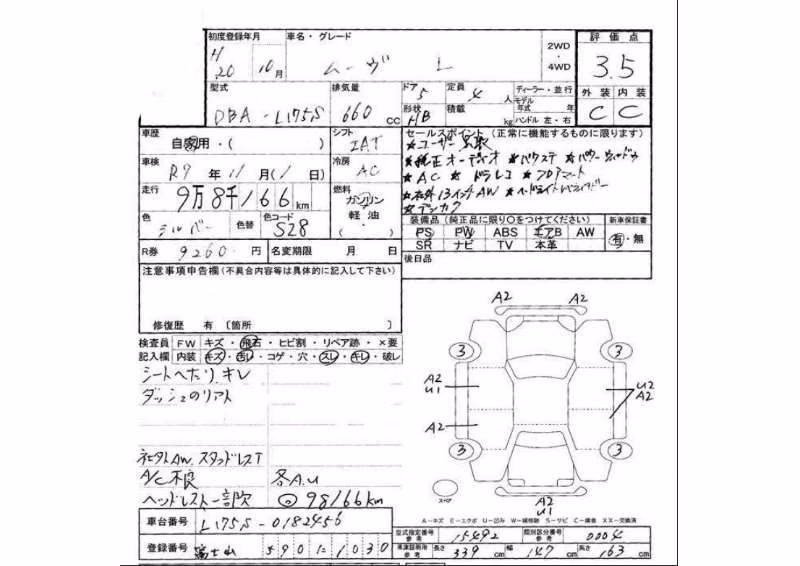 初度登録年月 車名・グレード 2WD・4WD 評価点
H20 10月 ムーヴ L 3.5
型式 排気量 ドア 5 定員 4人 ディーラー・並行 外装 内装
DBA-L175S 660cc 形状 HB 積載 kg モデル年式 年 ハンドル 左・右 C C
車歴 自家用・( ) シフト IAT セールスポイント (正常に機能するものに限ります)
★ユーザー買取
車検 R9年11月1日 冷房 AC ★純正オーディオ ★バックステ ★パワーウィンドウ
★AC ★ドラレコ ★フロアマット
走行 9万8千166km 燃料 ガソリン 軽油 ・( ) ★社外13インチAW ★ヘッドライトレベライザー
★デンカク
色 シルバー 色替 色コード S28 装備品 (純正品に限り○をつけてください) 新車保証書
PS PW ABS エアB AW 有・無
R券 9260円 名変期限 月 日 SR ナビ TV 本革
注意事項申告欄(不具合内容等は具体的に記入して下さい) 後日品
修復歴 有 〔箇所 〕
検査員 FW キズ・飛石・ヒビ割・リペア跡・×要
記入欄 内装 キズ・汚レ・コゲ・穴・スレ・キレ・破レ
シートへたり、キレ
ダッシュのリアト
社外AW、スタッドレスT
A/C不良 各A.U
ヘッドレスト一部欠 98166km
A2 A2
3 3
A2 U1 U2 A2
A2
3 3
スペア A2 U1
A-キズ E-エクボ U-凹み W-補修跡 S-サビ C-腐食 XX-交換済
車台番号 L175S-0182456
型式指定番号 参考 15492 類別区分番号 参考 0004
登録番号 富士山 590 1030
車庫証明用 参考 長さ 339cm 幅 147cm 高さ 163cm